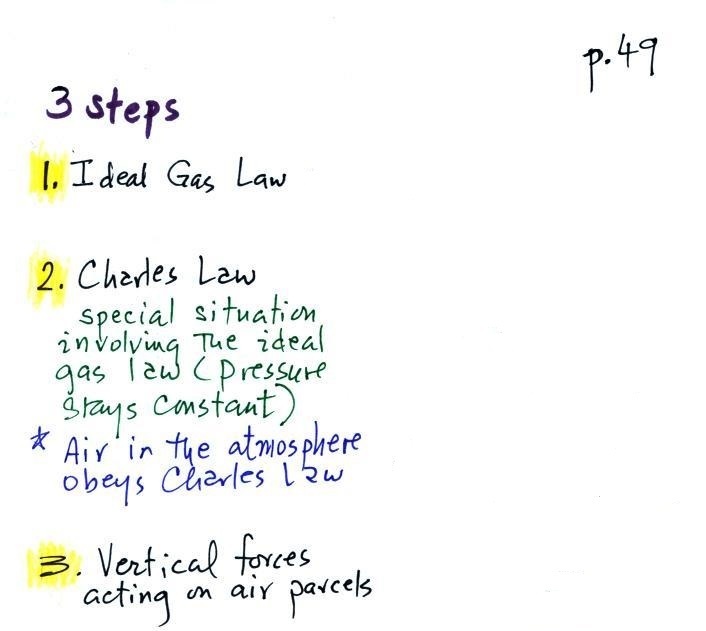 p.49
3 steps
1. Ideal Gas Law
2. Charles Law
special situation
involving The ideal
gas law (pressure
stays constant)
* Air in the atmosphere
obeys Charles Law
3. Vertical forces
acting on air parcels